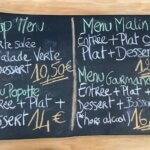 Menu
Salade Verte
Dessert 10,50€
Menu Popotte
Entrée + Plat +
Dessert 14€
Menu Malin
Entrée + Plat
Plat + Dessert
13
Menu Gourmand
Entrée + Plat +
Dessert + Boisson
(hors alcool) 16